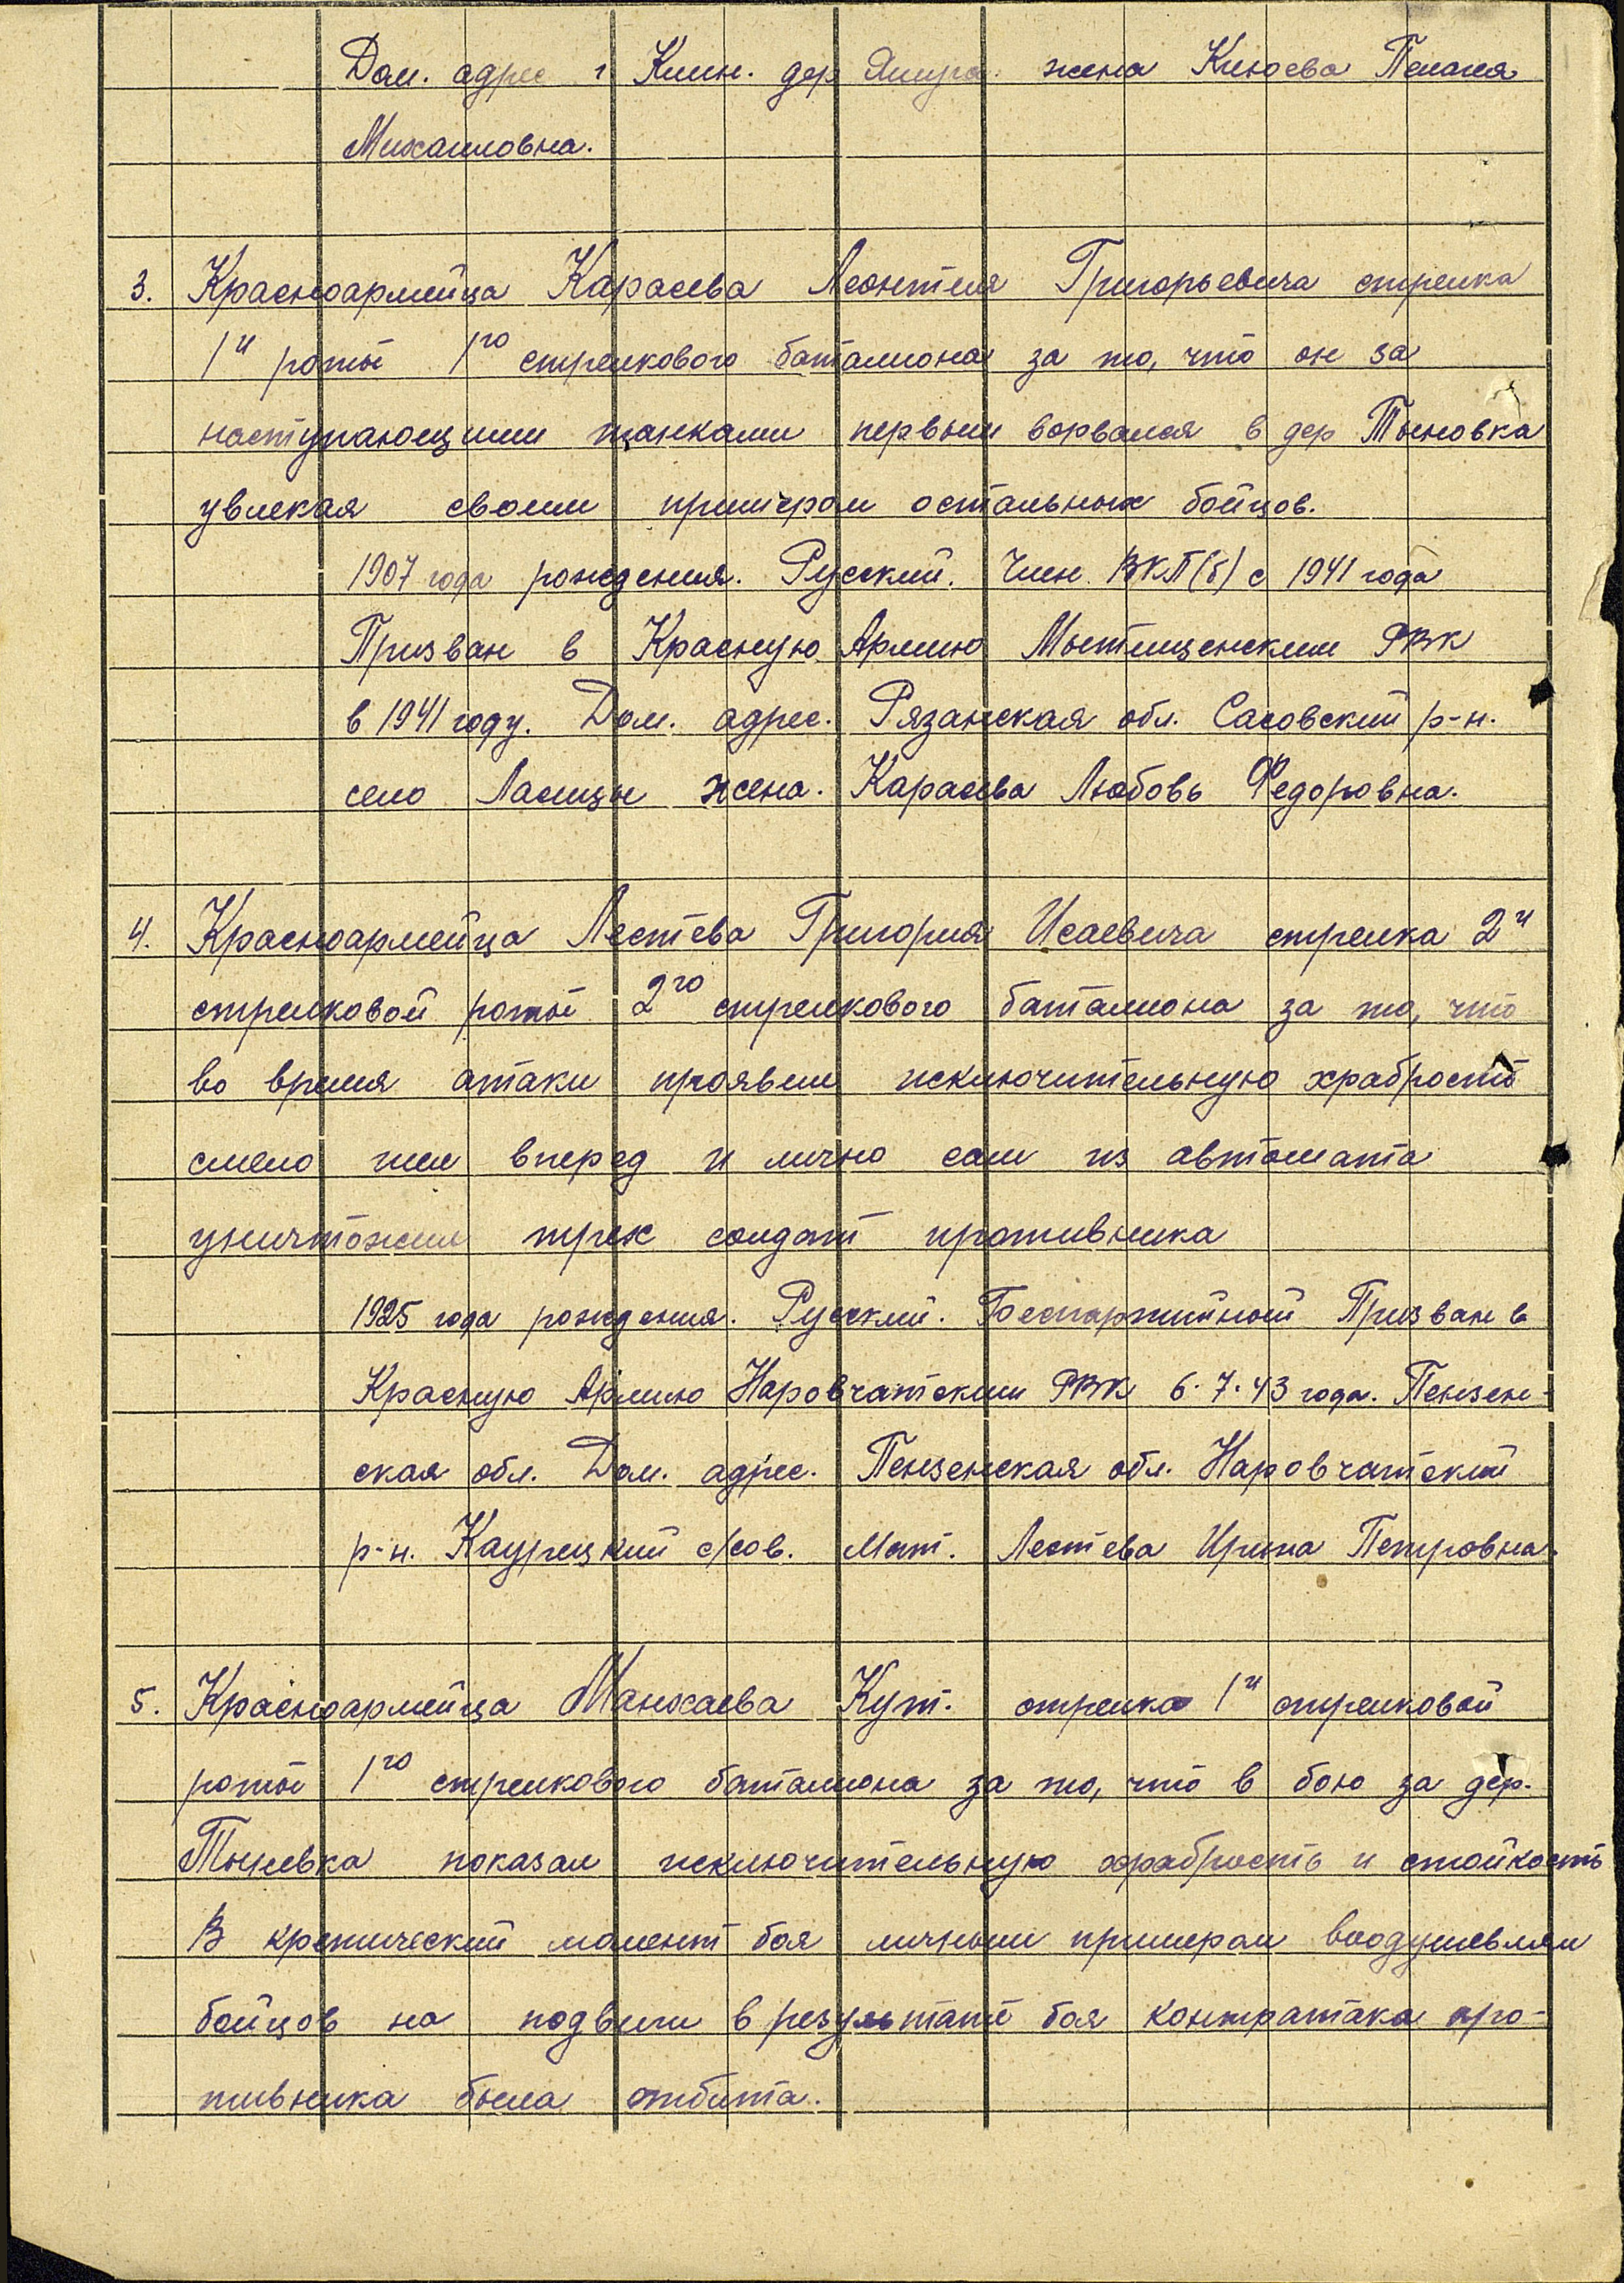 Дом. адрес г Клин. дер Ямуга жена Клюева Пелагея
Михаиловна.
3. Красноармейца Карасева Леонтия Григорьевича стрелка
1й роты 1го стрелкового баталиона за то, что он за
наступающими танками первым ворвался в дер Тыновка
увлекая своим примером остальных бойцов.
1907 года рождения. Русский. Член ВКП(б) с 1941 года
Призван в Красную Армию Мытищенским РВК
в 1941 году. Дом. адрес. Рязанская обл. Сасовский р-н.
село Ласицы жена. Карасева Любовь Федоровна.
4. Красноармейца Лестева Григория Исаевича стрелка 2й
стрелковой роты 2го стрелкового баталиона за то, что
во время атаки проявил исключительную храбрость
смело шел вперед и лично сам из автомата
уничтожил трех солдат противника
1925 года рождения. Русский. Беспартийный Призван в
Красную Армию Наровчатским РВК 6.7.43 года. Пензен-
ская обл. Дом. адрес. Пензенская обл. Наровчатский
р-н. Каурецкий с/сов. Мат. Лестева Ирина Петровна.
5. Красноармейца Манхаева Кут. стрелка 1й стрелковой
роты 1го стрелкового баталиона за то, что в бою за дер.
Тыневка показал исключительную храбрость и стойкость
В критический момент боя личным примером воодушевлял
бойцов на подвиги в результате боя контратака про-
тивника была отбита.